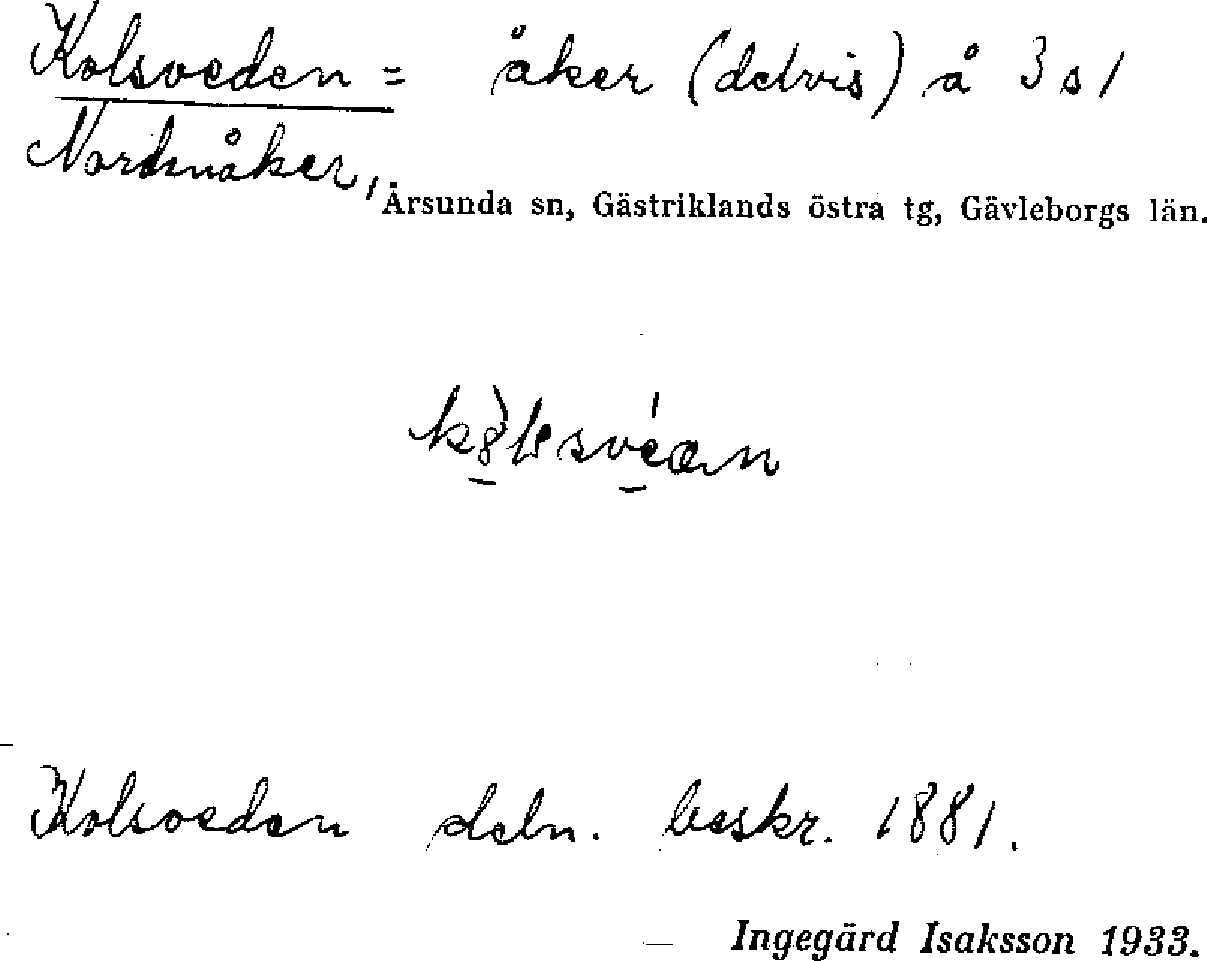 Kolsveden = åker (delvis) å 3 s 1
Nordnåker,
Årsunda sn, Gästriklands östra tg, Gävleborgs län.
Kolsveden deln. beskr. 1881.
Ingegärd Isaksson 1933.